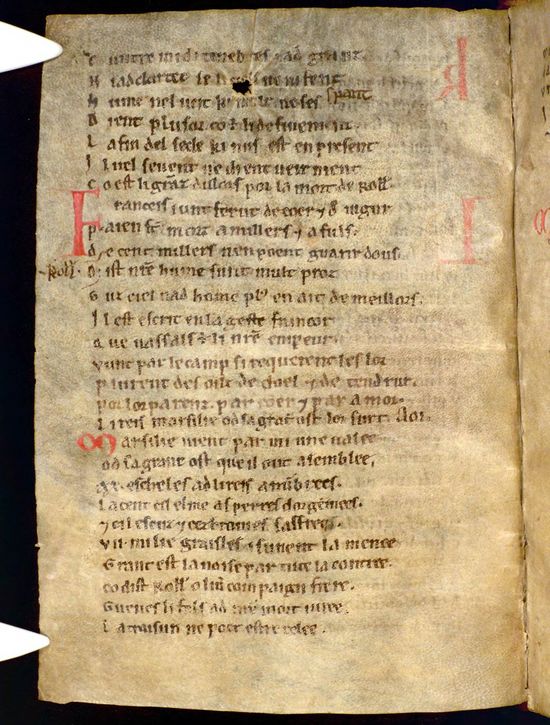 C untre midi tenebres i ad granz.
N i ad clartet se li ciels nen i fent.
H ume nel veit ki mult ne ses spant
D ient plusor co est li definement.
L a fin del secle ki nus est en present
I l nel sevent ne dient veir nient
C o est li granz dulors por la mort de Roll.
F ranceis i unt ferut de coer ⁊ de vigur
P aien st morz a millers ⁊ a fuls.
D e cent millers nen poent guarir dous.
Roll. dist nre hume sunt mult proz
S uz ciel nad home pl' en ait de meillors.
I l est escrit en la geste francor
Q ue vassals est li nre empereur
V unt par le camp si requerent les lor
P lurent des oilz de doel ⁊ de tendrur
P or lor parenz. par coer ⁊ par amor.
L i reis marsilie od sa grant ost lor surt. Aoi.
M arsilie vient par mi une valee
Od sa grant ost que il out asemblee,
.xx. escheles ad li reis anubrees.
L acent cil elme as perres dorgemees.
⁊ cil escuz ⁊ cez bronies sasfrees.
vii. milie graisles i sunent la menee
G rant est la noise par tute la contree.
C o dist Roll. oliv. compaign frere.
G uenes li fels ad nre mort juree.
L a traisun ne poet estre celee.